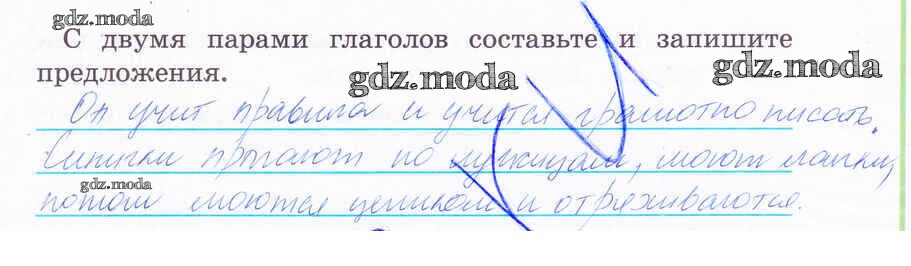 gdz.moda
С двумя парами глаголов составьте и запишите
предложения.
gdz.moda
gdz.moda
Он учит правила и учится грамотно писать.
Синички прыгают по лужицам, моют лапки,
gdz.moda
потом моются целиком и отряхиваются.